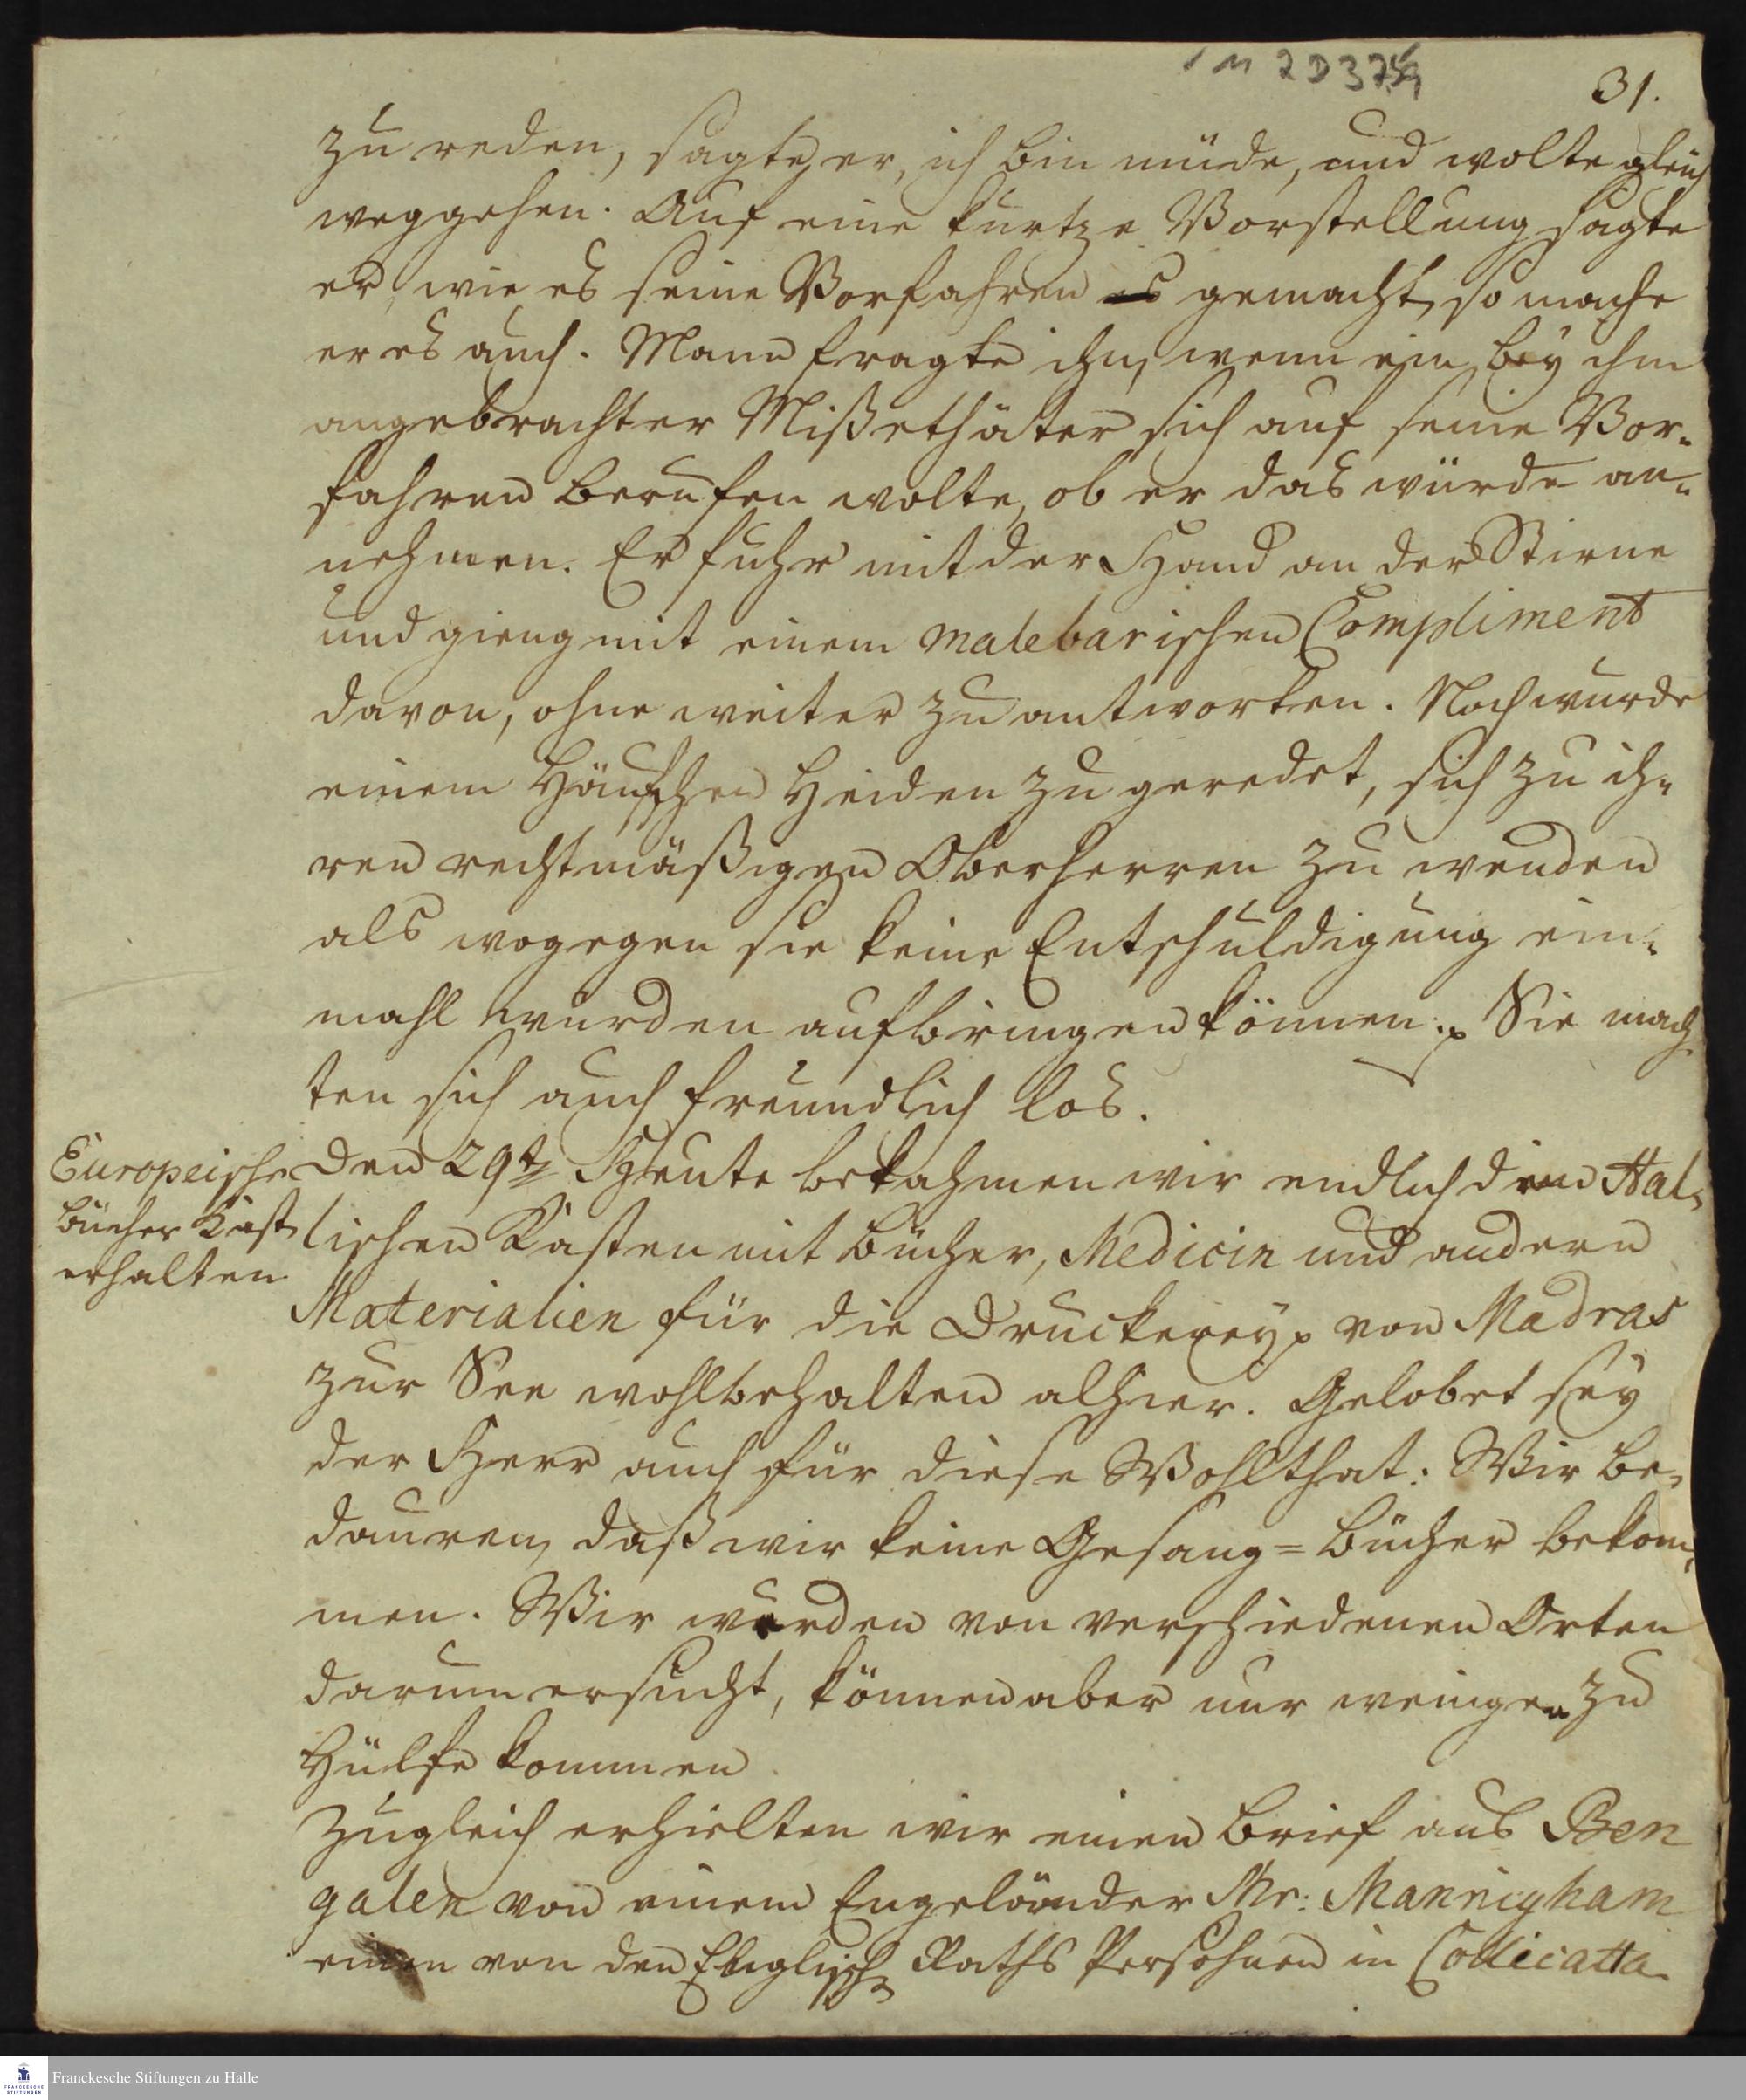 1 M 2 D 3759
31.
zu reden, sagte er, ich bin müde, und wolte gleich
weggehen. Auf eine kurtze Vorstellung sagte
er, wie es seine Vorfahren es gemacht, so mache
er es auch. Mann fragte ihn, wenn ein bey ihm
angebrachter Mißethäter sich auf seine Vor-
fahren beruffen wolte, ob er das würde an-
nehmen. Er fuhr mit der Hand an der Stirne
und gieng mit einem malebarischen Compliment
davon, ohne weiter zu antworten. Noch wurde
einem Häufchen Heiden zu geredet, sich zu ih-
ren rechtmäßigen Oberherren zu wenden
als wogegen sie keine Entschuldigung ein-
mahl würden aufbringen können. Sie mach
ten sich auch freundlich los.
Europeische
bücher Kast
erhalten
den 29t Heute bekahmen wir endlich den Hal-
lischen Kasten mit bücher, Medicin und andern
Materialien für die Druckerey von Madras
zur See wohlbehalten alhier. Gelobet sey
der Herr auch für diese Wohlthat. Wir be-
dauren, daß wir keine Gesang=bücher bekom-
men. Wir werden von verschiedenen Orten
darum ersucht, können aber nur wenigen zu
Hülfe kommen
Zugleich erhielten wir einen brief aus Ben
galen von einem Engeländer Mr: Mannigham
einen von den Englisch Raths Persohnen in Collicatta
Franckesche Stiftungen zu Halle
FRANCKESCHE
STIFTUNGEN